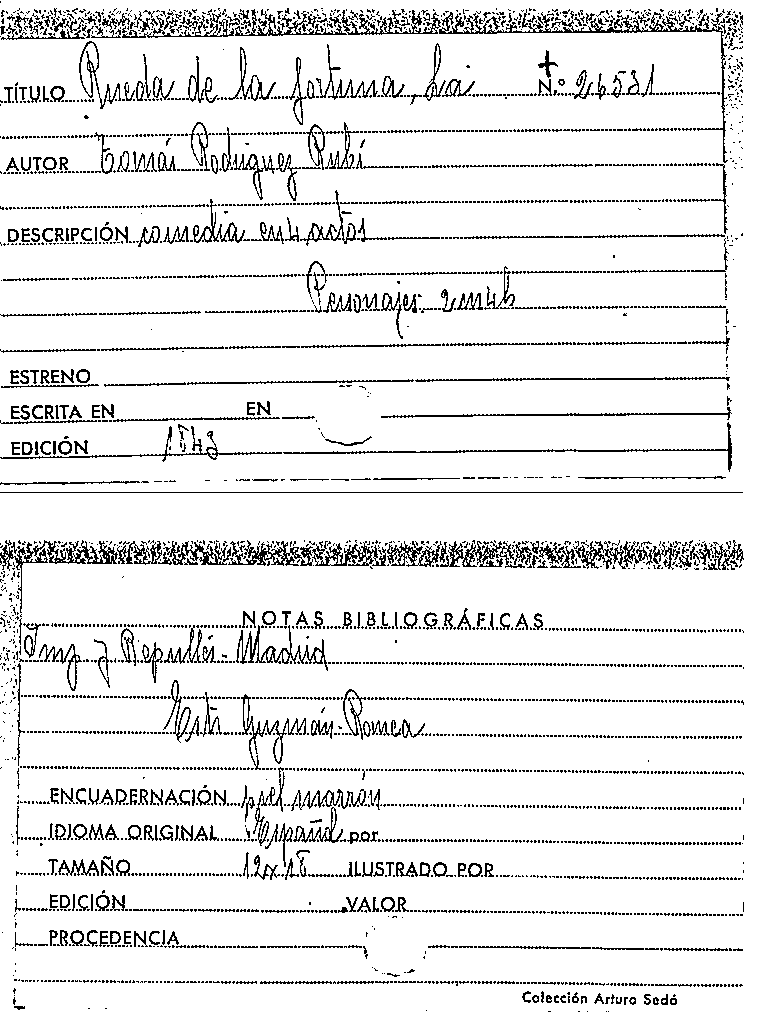 TÍTULO Rueda de la fortuna, La N.º 26531
AUTOR Tomás Rodriguez Rubí
DESCRIPCIÓN comedia en 4 actos
Personajes. 2m 4h
ESTRENO
ESCRITA EN EN
EDICIÓN 1843
NOTAS BIBLIOGRÁFICAS
Imp J Repullés - Madrid
Guzmán-Romea
ENCUADERNACIÓN piel marrón
IDIOMA ORIGINAL Español por
TAMAÑO 12x18 ILUSTRADO POR
EDICIÓN VALOR
PROCEDENCIA
Colección Arturo Sedó